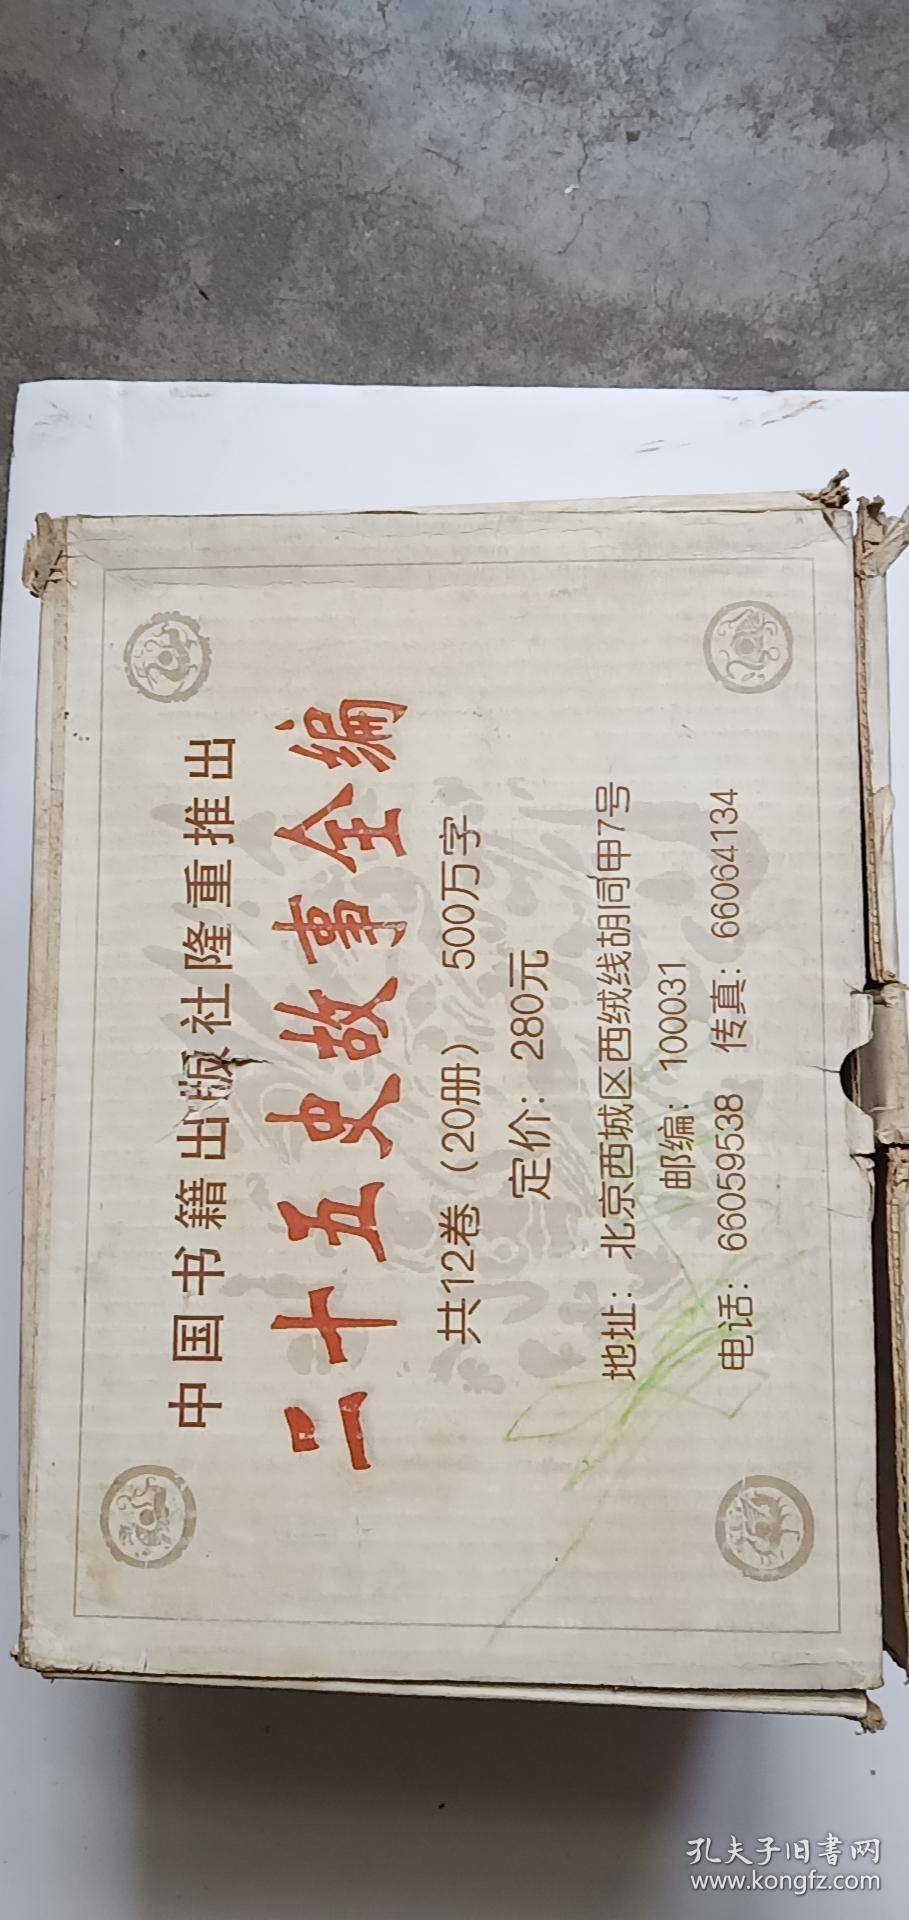 中国书籍出版社隆重推出
二十五史故事全编
共12卷（20册） 500万字
定价：280元
地址：北京西城区西绒线胡同甲7号
邮编：100031
电话：66059538 传真：66064134
孔夫子旧书网
www.kongfz.com